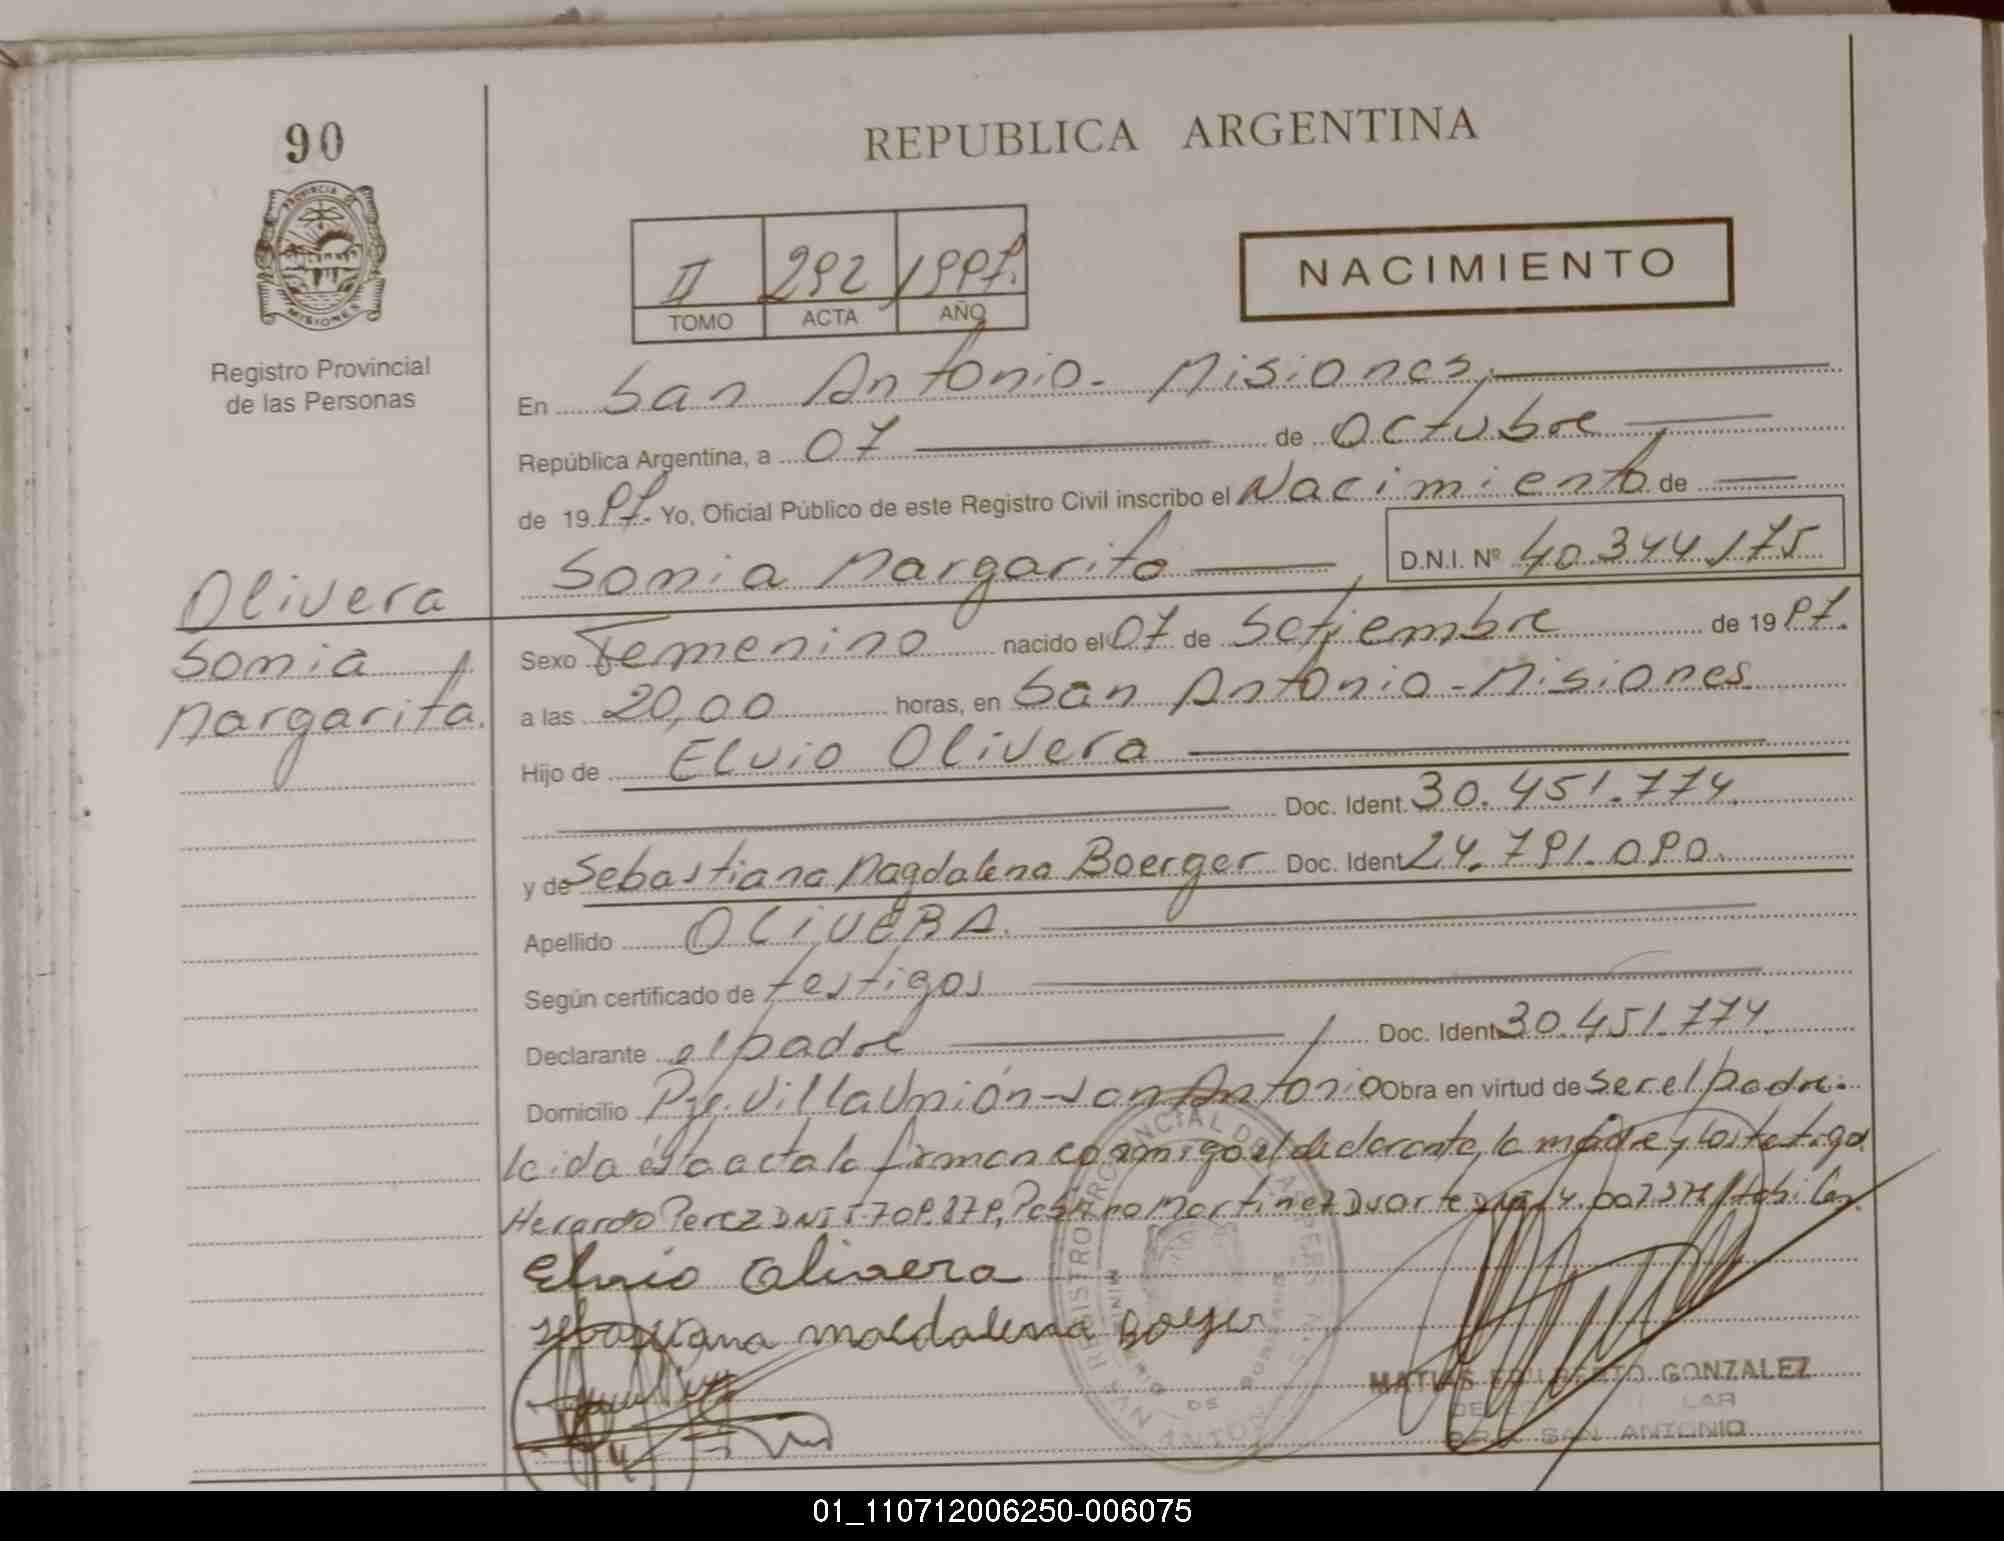 90
REPUBLICA ARGENTINA
PROVINCIA DE
MISIONES
Registro Provincial
de las Personas
II 292 1997.
TOMO ACTA AÑO
NACIMIENTO
En San Antonio - Misiones,
República Argentina, a 07 de Octubre
de 19 97.- Yo, Oficial Público de este Registro Civil inscribo el Nacimiento de
Sonia Margarita D.N.I. Nº 40.344.175
Olivera
Sonia
Margarita.
Sexo Femenino nacido el 07 de Setiembre de 19 97.
a las 20,00 horas, en San Antonio - Misiones
Hijo de Elvio Olivera
Doc. Ident. 30.451.774.
y de Sebastiana Magdalena Boerger Doc. Ident 24.791.090.
Apellido OLIVERA.
Según certificado de testigos
Declarante el padre Doc. Ident 30.451.774.
Domicilio Pje. Villa Unión - San Antonio Obra en virtud de ser el padre.
leida ésta acta la firman conmigo el declarante, la madre y los testigos
Herardo Perez DNI Martinez Duarte DNI
Elvio Olivera
Sebastiana maldalena Boerger
MATIAS GONZALEZ
SAN ANTONIO
01_110712006250-006075